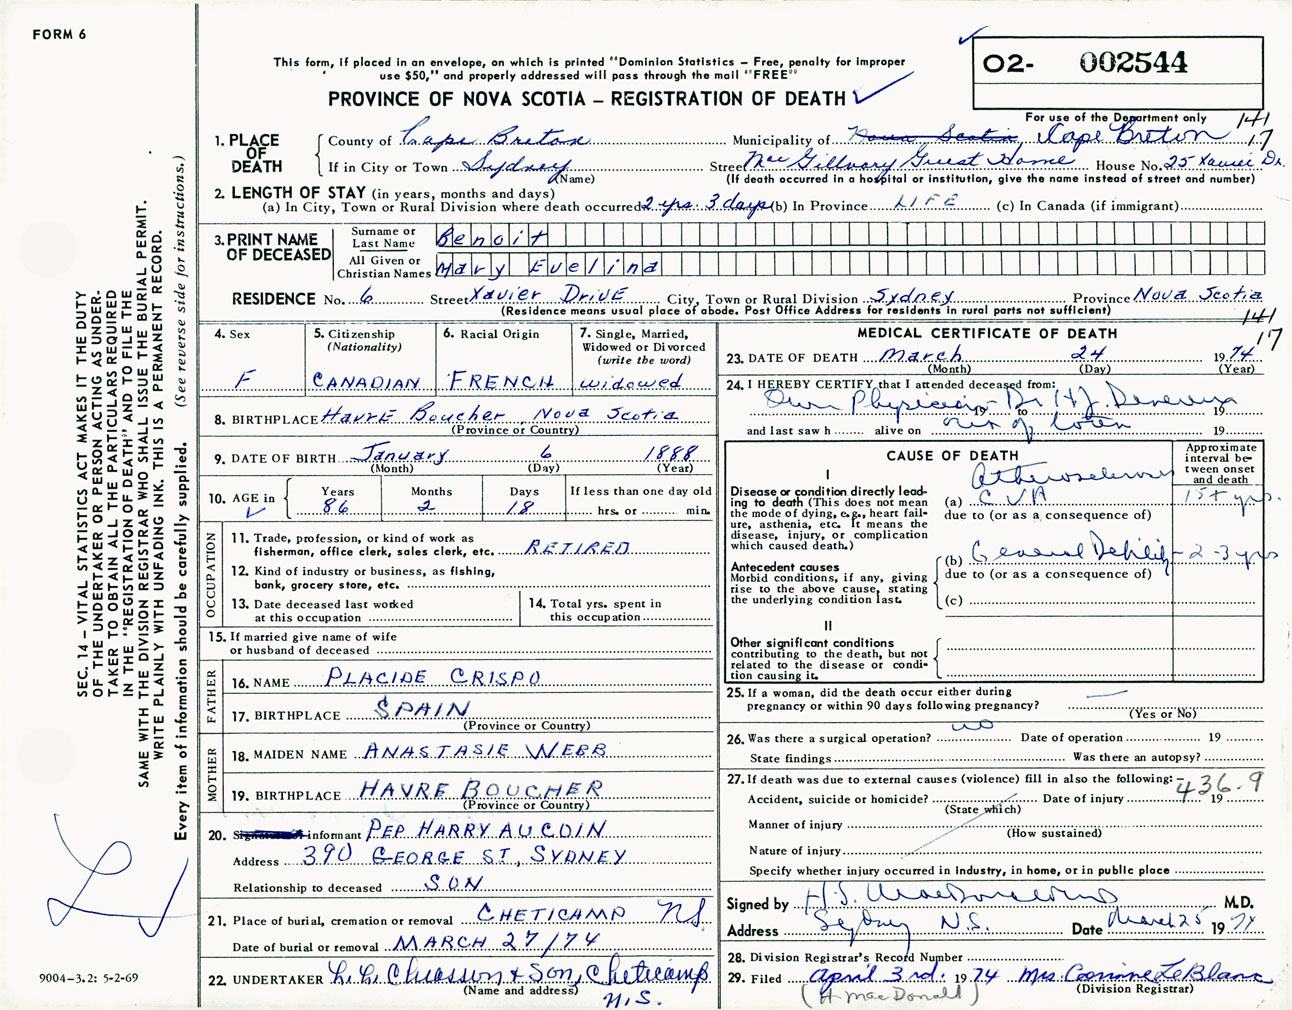 FORM 6
This form, if placed in an envelope, on which is printed "Dominion Statistics – Free, penalty for improper
use $50," and properly addressed will pass through the mail "FREE"
PROVINCE OF NOVA SCOTIA – REGISTRATION OF DEATH
02- 002544
For use of the Department only
141
17
1. PLACE OF DEATH
County of Cape Breton Municipality of Nova Scotia Cape Breton
If in City or Town Sydney (Name) Street MacGillvary Guest Home House No. 25 Xavier Dr.
(If death occurred in a hospital or institution, give the name instead of street and number)
2. LENGTH OF STAY (in years, months and days)
(a) In City, Town or Rural Division where death occurred 2 yrs. 3 days (b) In Province LIFE (c) In Canada (if immigrant)
3. PRINT NAME OF DECEASED
Surname or Last Name Benoit
All Given or Christian Names Mary Evelina
RESIDENCE No. 6 Street Xavier Drive City, Town or Rural Division Sydney Province Nova Scotia
(Residence means usual place of abode. Post Office Address for residents in rural parts not sufficient)
4. Sex F
5. Citizenship (Nationality) CANADIAN
6. Racial Origin FRENCH
7. Single, Married, Widowed or Divorced (write the word) widowed
8. BIRTHPLACE Havre Boucher Nova Scotia
(Province or Country)
9. DATE OF BIRTH January 6 1888
(Month) (Day) (Year)
10. AGE in Years 86 Months 2 Days 18 If less than one day old hrs. or min.
OCCUPATION
11. Trade, profession, or kind of work as
fisherman, office clerk, sales clerk, etc. RETIRED
12. Kind of industry or business, as fishing,
bank, grocery store, etc.
13. Date deceased last worked
at this occupation
14. Total yrs. spent in
this occupation
15. If married give name of wife
or husband of deceased
FATHER
16. NAME PLACIDE CRISPO
17. BIRTHPLACE SPAIN
(Province or Country)
MOTHER
18. MAIDEN NAME ANASTASIE WEBB
19. BIRTHPLACE HAVRE BOUCHER
(Province or Country)
20. informant PEP HARRY AUCOIN
Address 390 GEORGE ST., SYDNEY
Relationship to deceased SON
21. Place of burial, cremation or removal CHETICAMP NS.
Date of burial or removal MARCH 27/74
22. UNDERTAKER L. L. Chiasson & Son, Cheticamp
(Name and address)
N.S.
MEDICAL CERTIFICATE OF DEATH
141
17
23. DATE OF DEATH March 24 1974
(Month) (Day) (Year)
24. I HEREBY CERTIFY that I attended deceased from:
Own Physician - Dr. H.J. Devereux 19 to 19
and last saw h alive on out of town 19
CAUSE OF DEATH
Approximate interval between onset and death
I
Disease or condition directly leading to death (This does not
mean the mode of dying, e.g., heart failure, asthenia, etc. It means the
disease, injury, or complication
which caused death.)
Atherosclerosis
(a) CVA 15+ yrs.
due to (or as a consequence of)
Antecedent causes
Morbid conditions, if any, giving
rise to the above cause, stating
the underlying condition last.
(b) General Debility - 2-3 yrs
due to (or as a consequence of)
(c)
II
Other significant conditions
contributing to the death, but not
related to the disease or condition causing it.
25. If a woman, did the death occur either during
pregnancy or within 90 days following pregnancy?
(Yes or No)
26. Was there a surgical operation? no Date of operation 19
State findings Was there an autopsy?
27. If death was due to external causes (violence) fill in also the following:
436.9
Accident, suicide or homicide? Date of injury 19
(State which)
Manner of injury
(How sustained)
Nature of injury
Specify whether injury occurred in Industry, in home, or in public place
Signed by M.D.
Address Sydney N.S. Date March 25 1974
28. Division Registrar's Record Number
29. Filed April 3rd. 1974 Mrs. Corinne LeBlanc
(Division Registrar)
(H MacDonald)
SEC. 14 – VITAL STATISTICS ACT MAKES IT THE DUTY
OF THE UNDERTAKER OR PERSON ACTING AS UNDER-
TAKER TO OBTAIN ALL THE PARTICULARS REQUIRED
IN THE "REGISTRATION OF DEATH" AND TO FILE THE
SAME WITH THE DIVISION REGISTRAR WHO SHALL ISSUE THE BURIAL PERMIT.
WRITE PLAINLY WITH UNFADING INK. THIS IS A PERMANENT RECORD.
Every item of information should be carefully supplied. (See reverse side for instructions.)
9004-3.2: 5-2-69